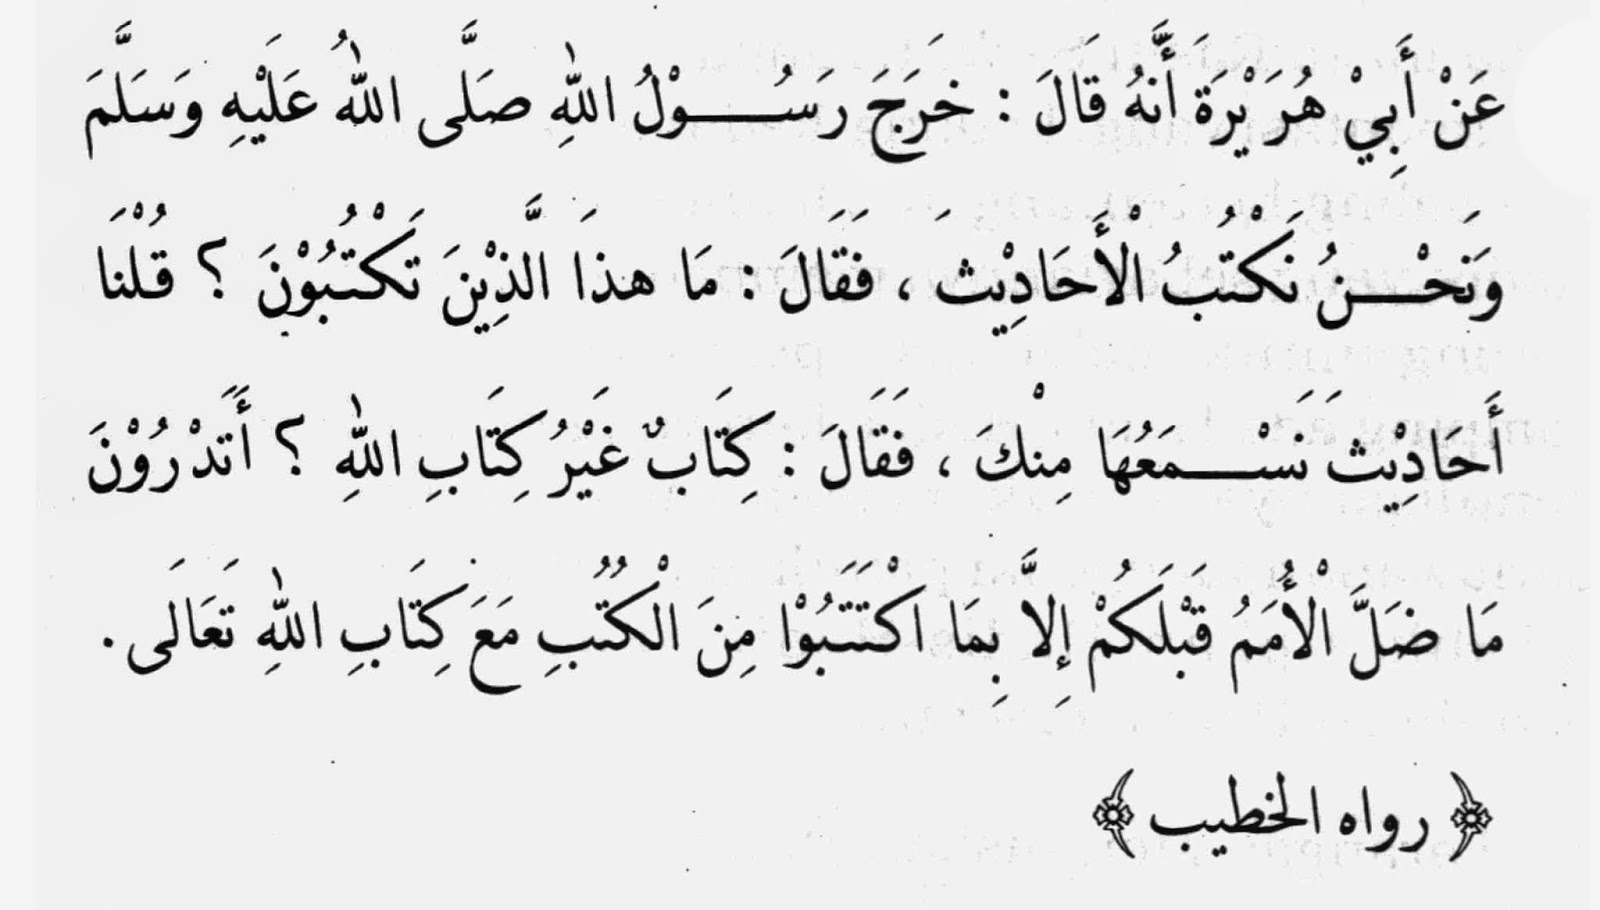 عَنْ أَبِيْ هُرَيْرَةَ أَنَّهُ قَالَ : خَرَجَ رَسُوْلُ اللهِ صَلَّى اللهُ عَلَيْهِ وَسَلَّمَ
وَنَحْنُ نَكْتُبُ الْأَحَادِيْثَ ، فَقَالَ : مَا هذَا الَّذِيْنَ تَكْتُبُوْنَ ؟ قُلْنَا
أَحَادِيْثَ نَسْمَعُهَا مِنْكَ ، فَقَالَ : كِتَابٌ غَيْرُ كِتَابِ اللهِ ؟ أَتَدْرُوْنَ
مَا ضَلَّ الْأُمَمُ قَبْلَكُمْ إِلاَّ بِمَا اكْتَتَبُوْا مِنَ الْكُتُبِ مَعَ كِتَابِ اللهِ تَعَالَى .
﴿ رواه الخطيب ﴾